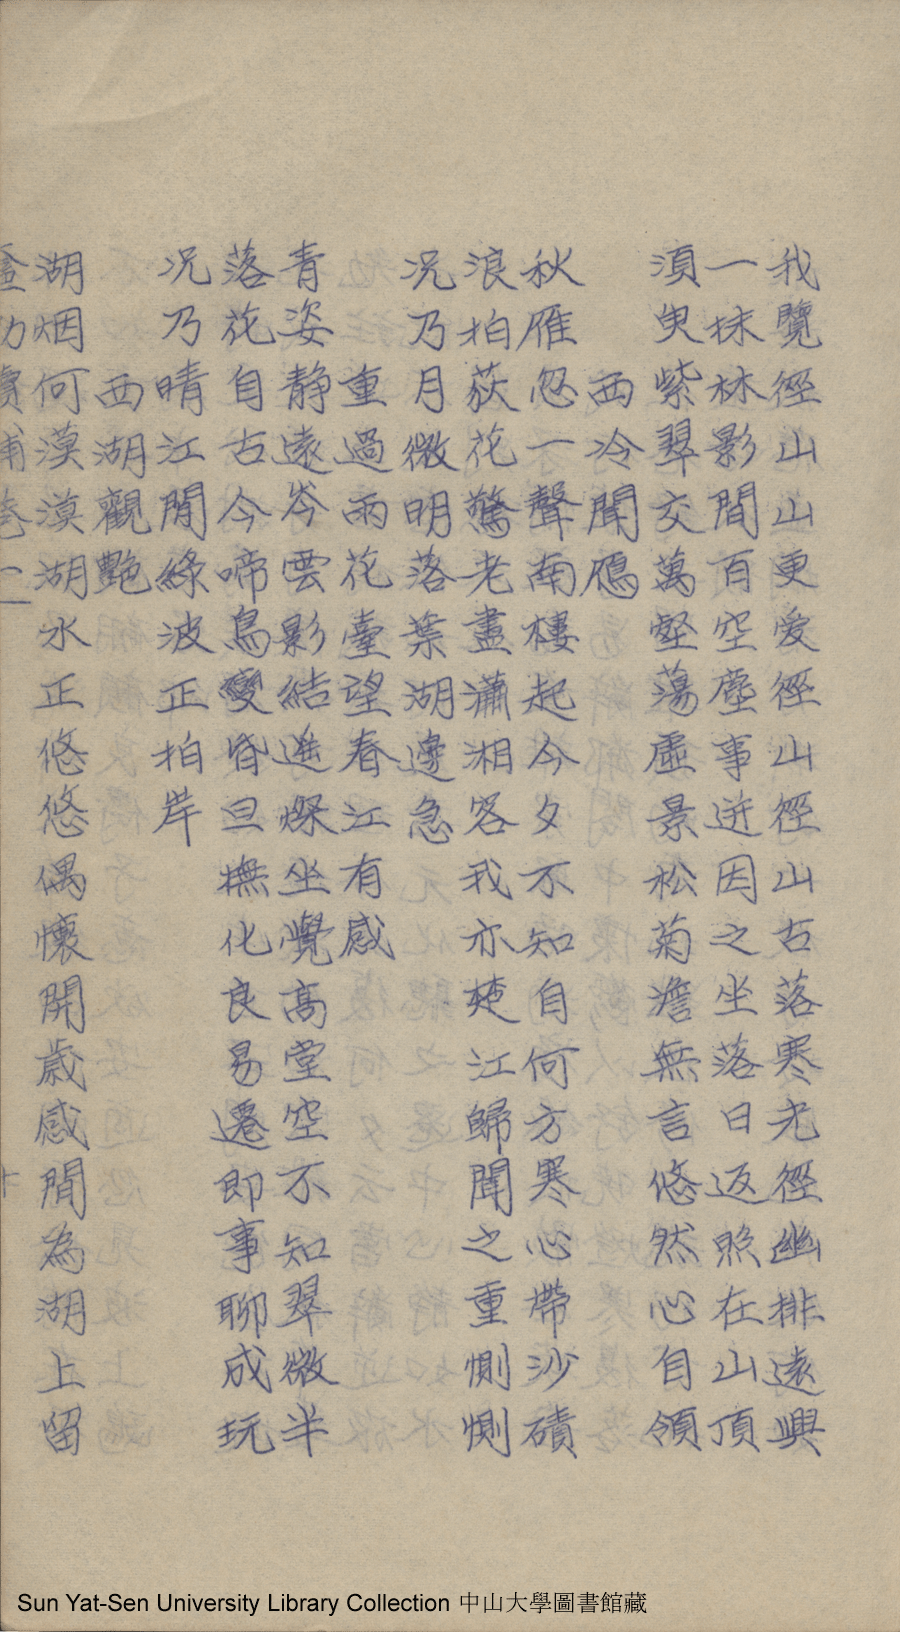 我覽徑山山更爱徑山徑山古落寒光徑幽排遠興
一抹林影間百空塵事迸因之坐落日返照在山頂
須臾紫翠交萬壑蕩虛景松菊澹無言悠然心自領
西冷聞鴈
秋雁忽一聲南樓起今夕不知自何方寒心帶沙磧
浪拍荻花驚老盡瀟湘客我亦楚江歸聞之重惻惻
况乃月微明落葉湖邊急
重過雨花臺望春江有感
青姿静遠岑雲影結遥燦坐覺高堂空不知翠微半
落花自古今啼鳥變昏旦撫化良易遷即事聊成玩
况乃晴江閒綠波正拍岸
西湖觀艷
湖烟何漠漠湖水正悠悠偶懷開歲感閒為湖上留
Sun Yat-Sen University Library Collection 中山大學圖書館藏